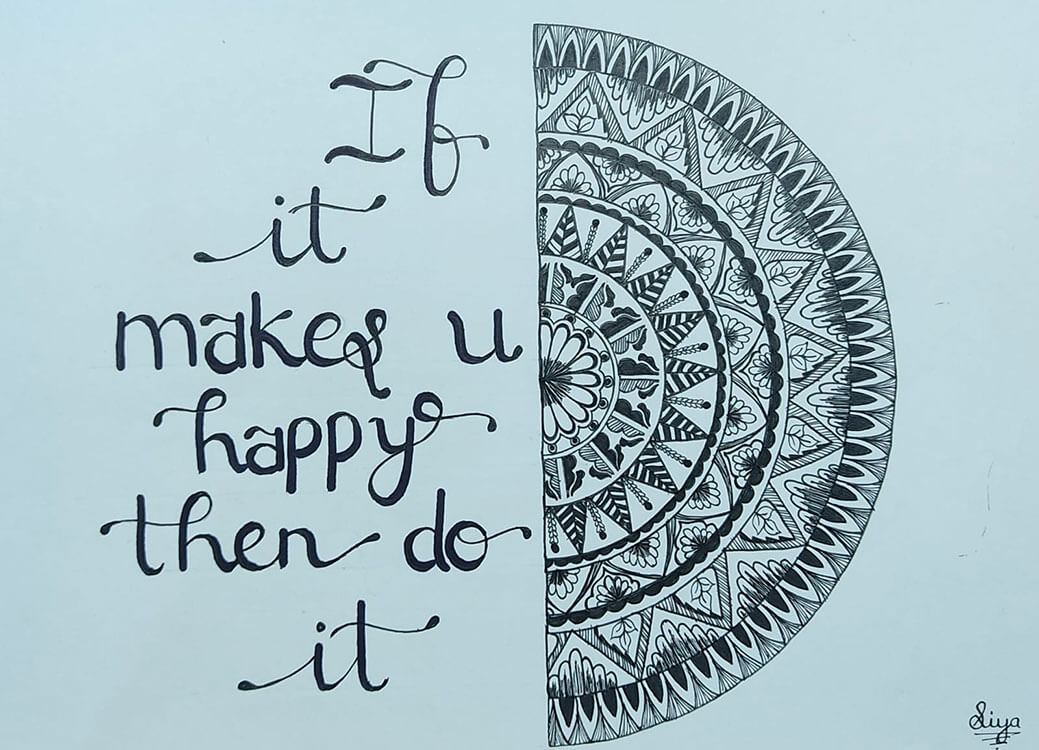 If
it
makes u
happy
then do
it
Siya